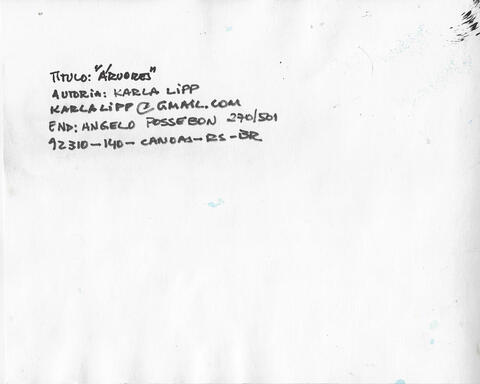 TITULO: "ÁRVORES"
AUTORIA: KARLA LIPP
KARLALIPP@GMAIL.COM
END: ANGELO POSSEBON 270/501
92310-140-CANOAS-RS-BR